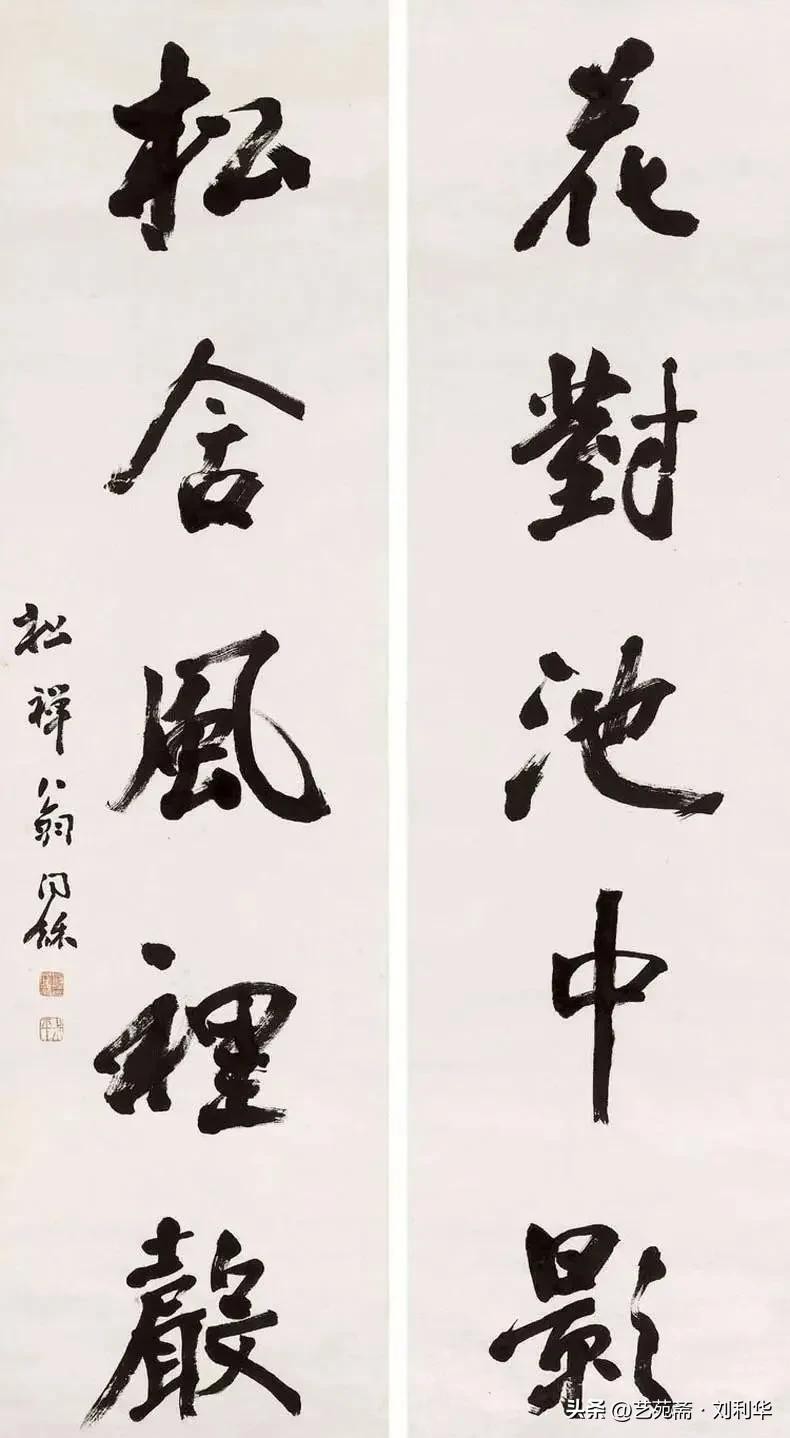 花對池中影
松含風裡聲
松禪翁同龢
头条 @艺苑斋·刘利华